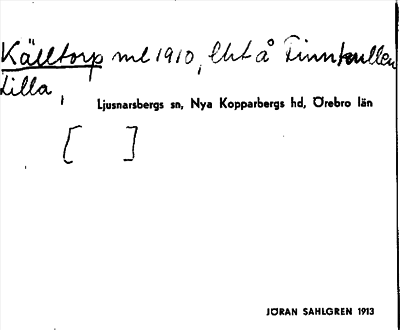 Källtorp ml 1910, lht å Finnkullen
Lilla,
Ljusnarsbergs sn, Nya Kopparbergs hd, Örebro län
[ ]
JÖRAN SAHLGREN 1913